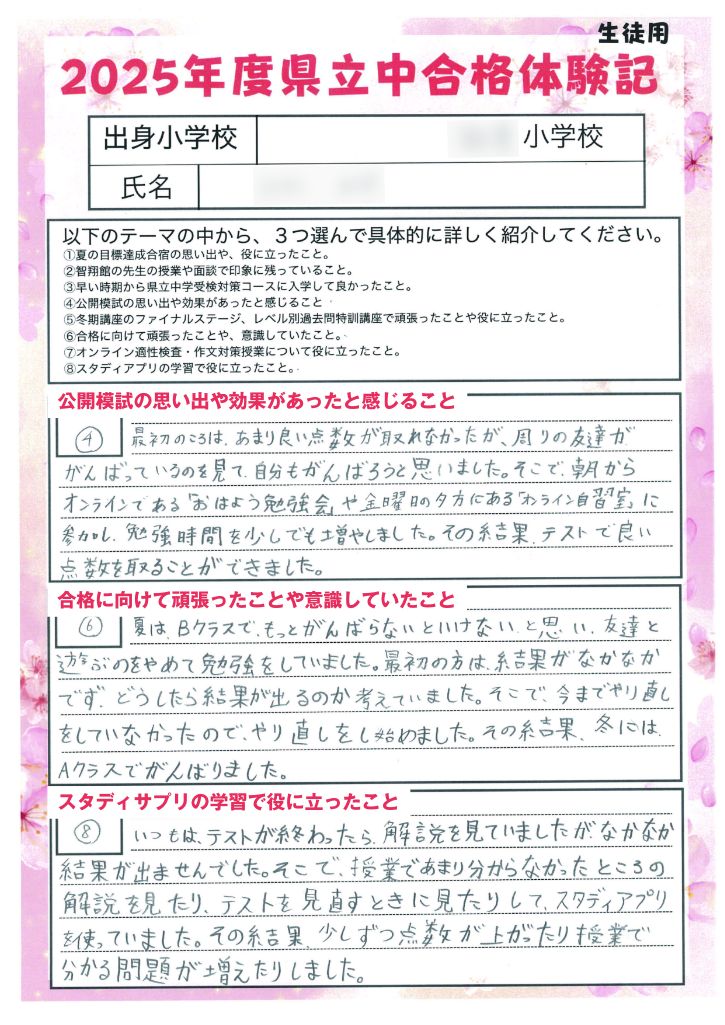 生徒用
2025年度県立中合格体験記
出身小学校 小学校
氏名
以下のテーマの中から、３つ選んで具体的に詳しく紹介してください。
①夏の目標達成合宿の思い出や、役に立ったこと。
②智翔館の先生の授業や面談で印象に残っていること。
③早い時期から県立中学受検対策コースに入学して良かったこと。
④公開模試の思い出や効果があったと感じること
⑤冬期講座のファイナルステージ、レベル別過去問特訓講座で頑張ったことや役に立ったこと。
⑥合格に向けて頑張ったことや、意識していたこと。
⑦オンライン適性検査・作文対策授業について役に立ったこと。
⑧スタディアプリの学習で役に立ったこと。
公開模試の思い出や効果があったと感じること
④ 最初のころは、あまり良い点数が取れなかったが、周りの友達が
がんばっているのを見て、自分もがんばろうと思いました。そこで、朝から
オンラインである「おはよう勉強会」や金曜日の夕方にある「オンライン自習室」に
参加し、勉強時間を少しでも増やしました。その結果、テストで良い
点数を取ることができました。
合格に向けて頑張ったことや意識していたこと
⑥ 夏は、Bクラスで、もっとがんばらないといけない、と思い、友達と
遊ぶのをやめて勉強をしていました。最初の方は、結果がなかなか
でず、どうしたら結果が出るのか考えていました。そこで、今までやり直し
をしていなかったので、やり直しをし始めました。その結果、冬には、
Aクラスでがんばりました。
スタディサプリの学習で役に立ったこと
⑧ いつもは、テストが終わったら、解説を見ていましたが、なかなか
結果が出ませんでした。そこで、授業であまり分からなかったところの
解説を見たり、テストを見直すときに見たりして、スタディアプリ
を使っていました。その結果、少しずつ点数が上がったり授業で
分かる問題が増えたりしました。